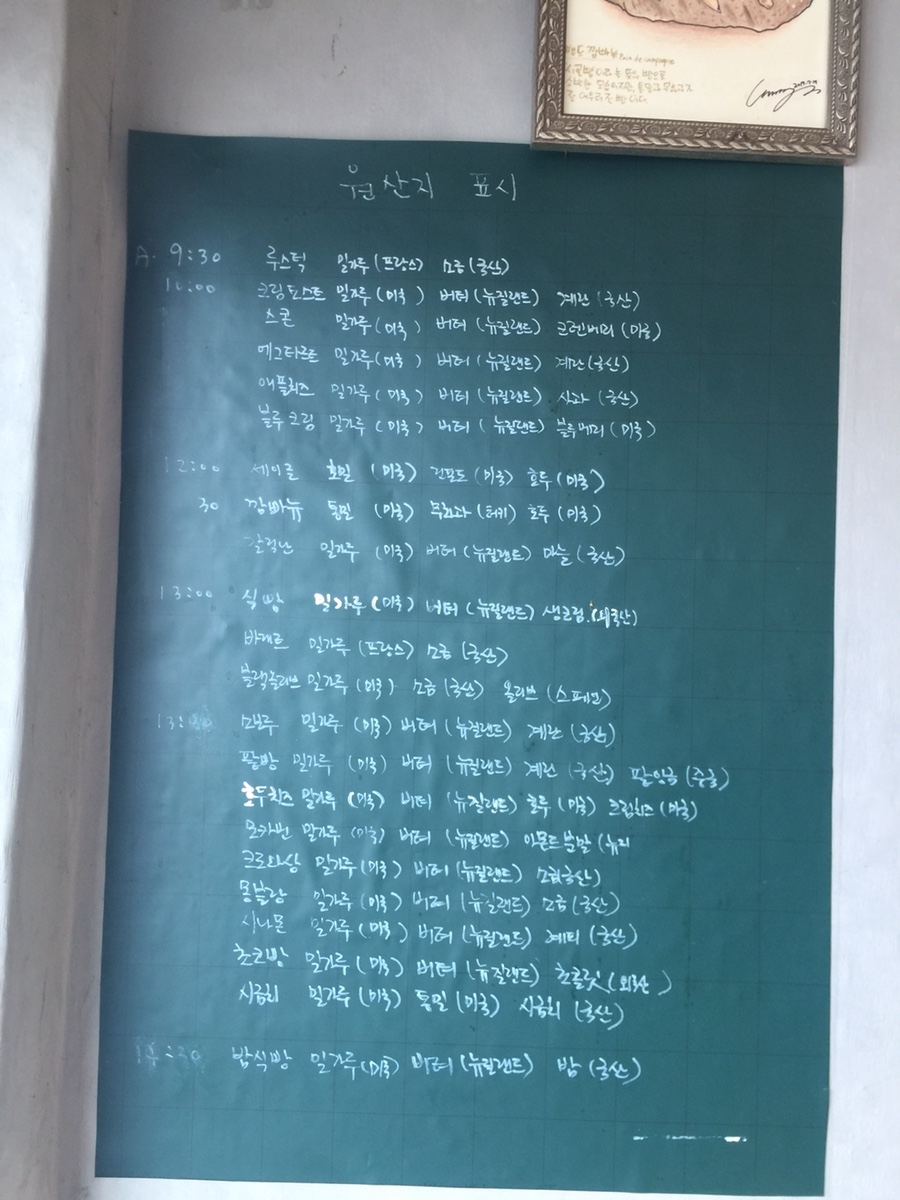 빵드 깜빠뉴 Pain de campagne
시골빵이라는 뜻의 빵으로
원산지 표시
A. 9:30 루스틱 밀가루 (프랑스) 소금 (국산)
10:00 크림토스트 밀가루 (미국) 버터 (뉴질랜드) 계란 (국산)
스콘 밀가루 (미국) 버터 (뉴질랜드) 크렌베리 (미국)
에그타르트 밀가루 (미국) 버터 (뉴질랜드) 계란 (국산)
애플리즈 밀가루 (미국) 버터 (뉴질랜드) 사과 (국산)
블루크림 밀가루 (미국) 버터 (뉴질랜드) 블루베리 (미국)
12:00 세이글 호밀 (미국) 건포도 (미국) 호두 (미국)
30 깜빠뉴 통밀 (미국) 무화과 (터키) 호두 (미국)
갈릭난 밀가루 (미국) 버터 (뉴질랜드) 마늘 (국산)
13:00 식빵 밀가루 (미국) 버터 (뉴질랜드) 생크림 (외국산)
바게트 밀가루 (프랑스) 소금 (국산)
블랙올리브 밀가루 (미국) 소금 (국산) 올리브 (스페인)
소보루 밀가루 (미국) 버터 (뉴질랜드) 계란 (국산)
팥빵 밀가루 (미국) 버터 (뉴질랜드) 계란 (국산) 팥앙금 (중국)
호두치즈 밀가루 (미국) 버터 (뉴질랜드) 호두 (미국) 크림치즈 (미국)
모카번 밀가루 (미국) 버터 (뉴질랜드) 아몬드분말 (뉴리
크로와상 밀가루 (미국) 버터 (뉴질랜드) 소금 (국산)
몽블랑 밀가루 (미국) 버터 (뉴질랜드) 소금 (국산)
시나몬 밀가루 (미국) 버터 (뉴질랜드) 계피 (국산)
초코빵 밀가루 (미국) 버터 (뉴질랜드) 초콜릿 (외국산)
시금치 밀가루 (미국) 통밀 (미국) 시금치 (국산)
14:30 밤식빵 밀가루 (미국) 버터 (뉴질랜드) 밤 (국산)